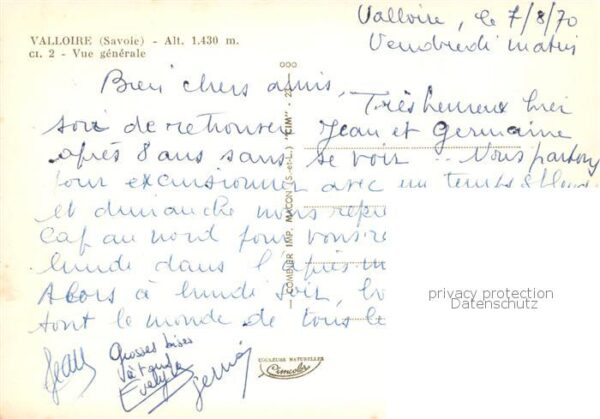 VALLOIRE (Savoie) - Alt. 1.430 m.
CI. 2 - Vue générale
Valloire, le 7/8/70
Vendredi matin
Bien chers amis,
Très heureux hier
soir de retrouver Jean et Germaine
après 8 ans sans se voir .. Nous partons
pour excursionner avec un temps
et dimanche nous
Cap au nord pour vous
lundi dans l'après-m
Alors à lundi soir,
tout le monde de tous
Jean
Grosses bises
à tous
Evelyne
COMBIER IMP. MACON (S.-et-L.) "CIM"
COULEURS NATURELLES
Cimcolor
privacy protection
Datenschutz